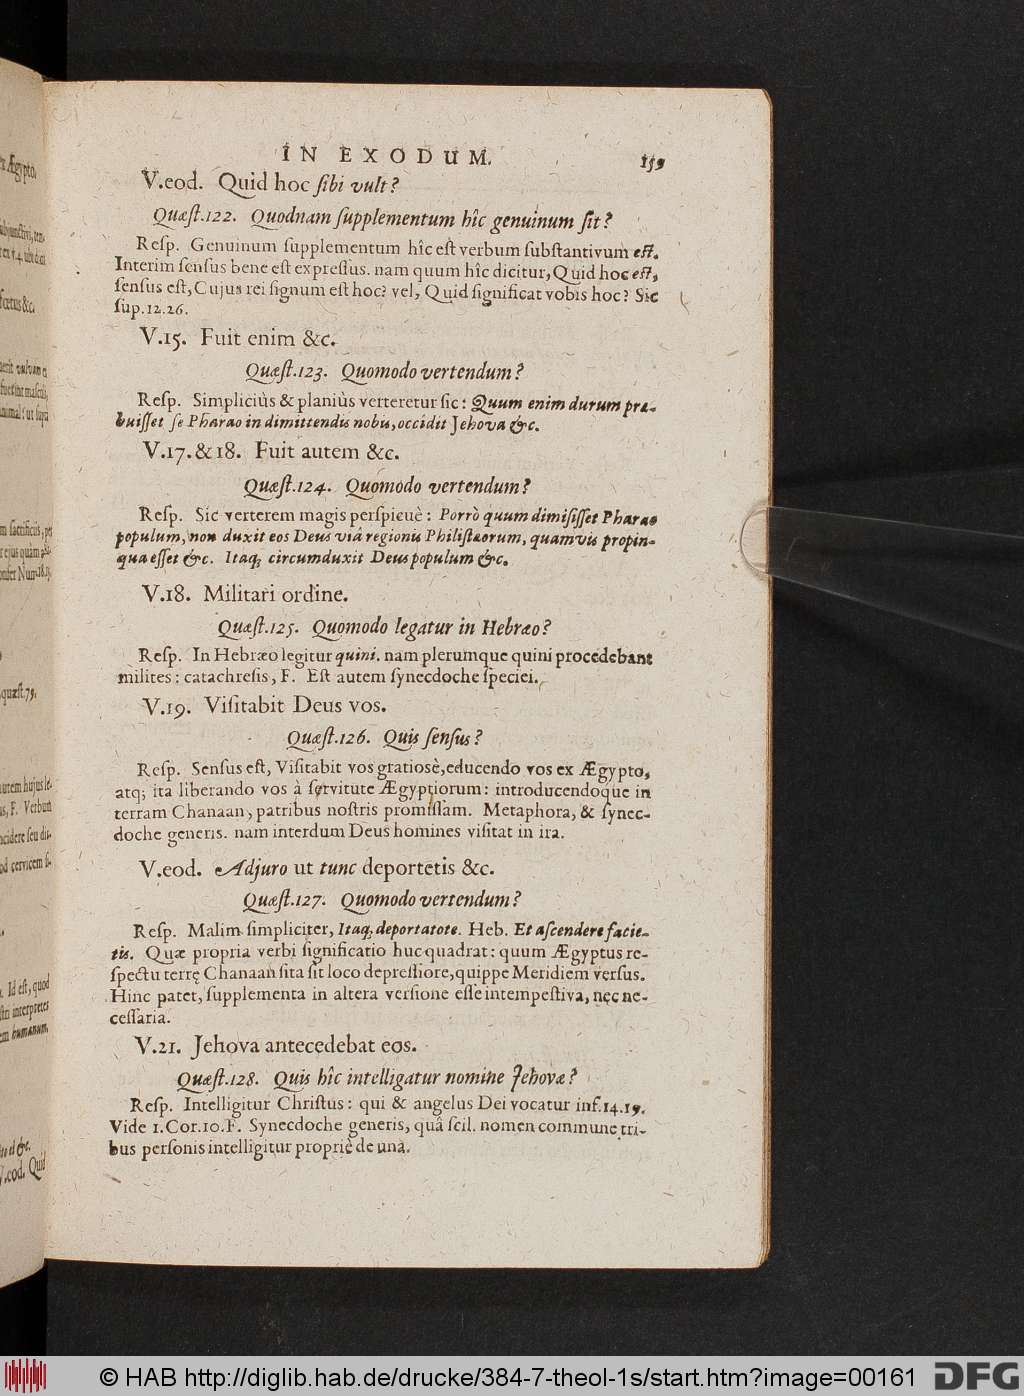 IN EXODUM. 159
V.eod. Quid hoc sibi vult?
Quæst.122. Quodnam supplementum hîc genuinum sit?
Resp. Genuinum supplementum hîc est verbum substantivum est.
Interim sensus bene est expressus. nam quum hîc dicitur, Quid hoc est,
sensus est, Cujus rei signum est hoc? vel, Quid significat vobis hoc? Sic
sup.12.26.
V.15. Fuit enim &c.
Quæst.123. Quomodo vertendum?
Resp. Simpliciùs & planiùs verteretur sic: Quum enim durum præ-
buisset se Pharao in dimittendis nobis, occidit Jehova &c.
V.17.&18. Fuit autem &c.
Quæst.124. Quomodo vertendum?
Resp. Sic verterem magis perspicuè: Porrò quum dimisisset Pharao
populum, non duxit eos Deus viâ regionis Philistæorum, quamvis propin-
qua esset &c. Itaq; circumduxit Deus populum &c.
V.18. Militari ordine.
Quæst.125. Quomodo legatur in Hebræo?
Resp. In Hebræo legitur quini. nam plerumque quini procedebant
milites: catachresis, F. Est autem synecdoche speciei.
V.19. Visitabit Deus vos.
Quæst.126. Quis sensus?
Resp. Sensus est, Visitabit vos gratiosè, educendo vos ex Ægypto,
atq; ita liberando vos à servitute Ægyptiorum: introducendoque in
terram Chanaan, patribus nostris promissam. Metaphora, & synec-
doche generis. nam interdum Deus homines visitat in ira.
V.eod. Adjuro ut tunc deportetis &c.
Quæst.127. Quomodo vertendum?
Resp. Malim simpliciter, Itaq; deportatote. Heb. Et ascendere facie-
tis. Quæ propria verbi significatio huc quadrat: quum Ægyptus re-
spectu terrę Chanaan sita sit loco depressiore, quippe Meridiem versus.
Hinc patet, supplementa in altera versione esse intempestiva, nec ne-
cessaria.
V.21. Jehova antecedebat eos.
Quæst.128. Quis hîc intelligatur nomine Jehovæ?
Resp. Intelligitur Christus: qui & angelus Dei vocatur inf.14.19.
Vide 1.Cor.10.F. Synecdoche generis, quâ scil. nomen commune tri-
bus personis intelligitur propriè de una.
© HAB http://diglib.hab.de/drucke/384-7-theol-1s/start.htm?image=00161
DFG